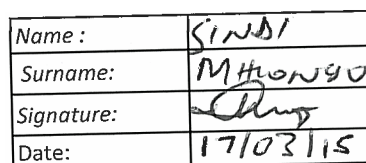 Name : SINDI
Surname: MHLONGO
Signature:
Date: 17/03/15